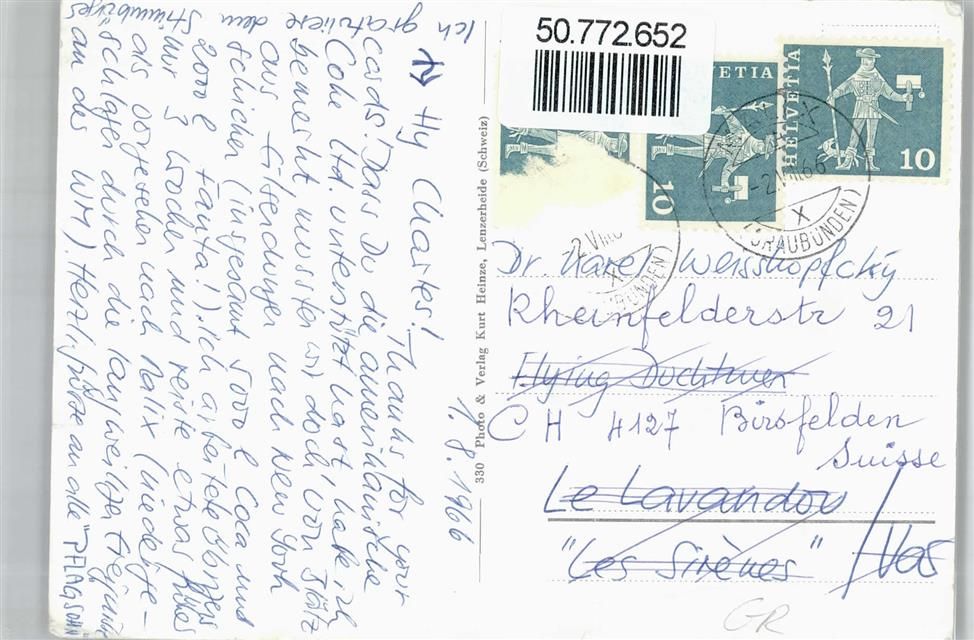 1.8.1966
Hy Charles! Thanks for your
cards! Dass Du die amerikanische
Coke Ltd. unterstützt hast, habe ich
bemerkt, mussten wir doch von
aus Eilsendungen nach New York
schicken (insgesamt 5000 l Coca und
2000 l Fanta!). Ich arbeitete übrigens
nur 3 Wochen und reiste etwas
als vorgesehen nach Malix (Niederge-
schlagen durch die langweilige Ereignisse
an der WM). Herzl. Grüsse an alle
Ich
gratuliere dem
330 Photo & Verlag Kurt Heinze, Lenzerheide (Schweiz)
50.772.652
HELVETIA
10
HELVETIA
10
MALIX
-2.VIII.66
X
(GRAUBÜNDEN)
-2.VIII.6
X
BÜNDEN)
Dr. Karel
Rheinfelderstr 21
Flying Dutchman
CH 4127 Birsfelden
Suisse
Le Lavandou
"Les Sirènes" / Var
GR